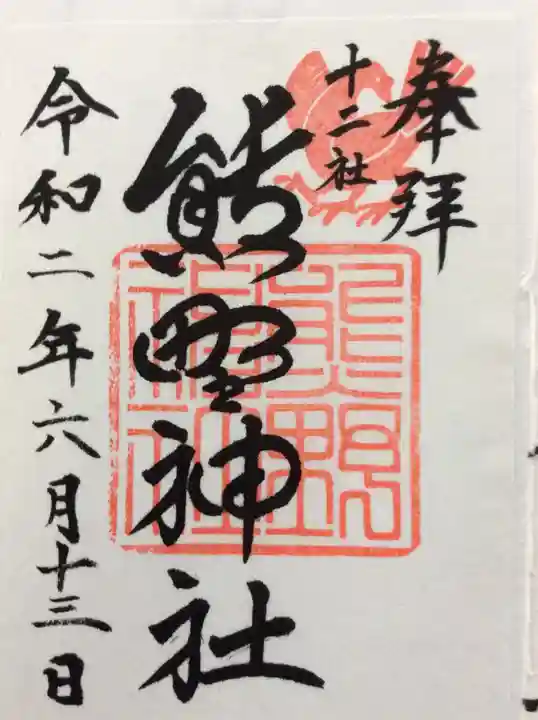 奉拝
十二社
熊野神社
熊野
神社
令和二年六月十三日